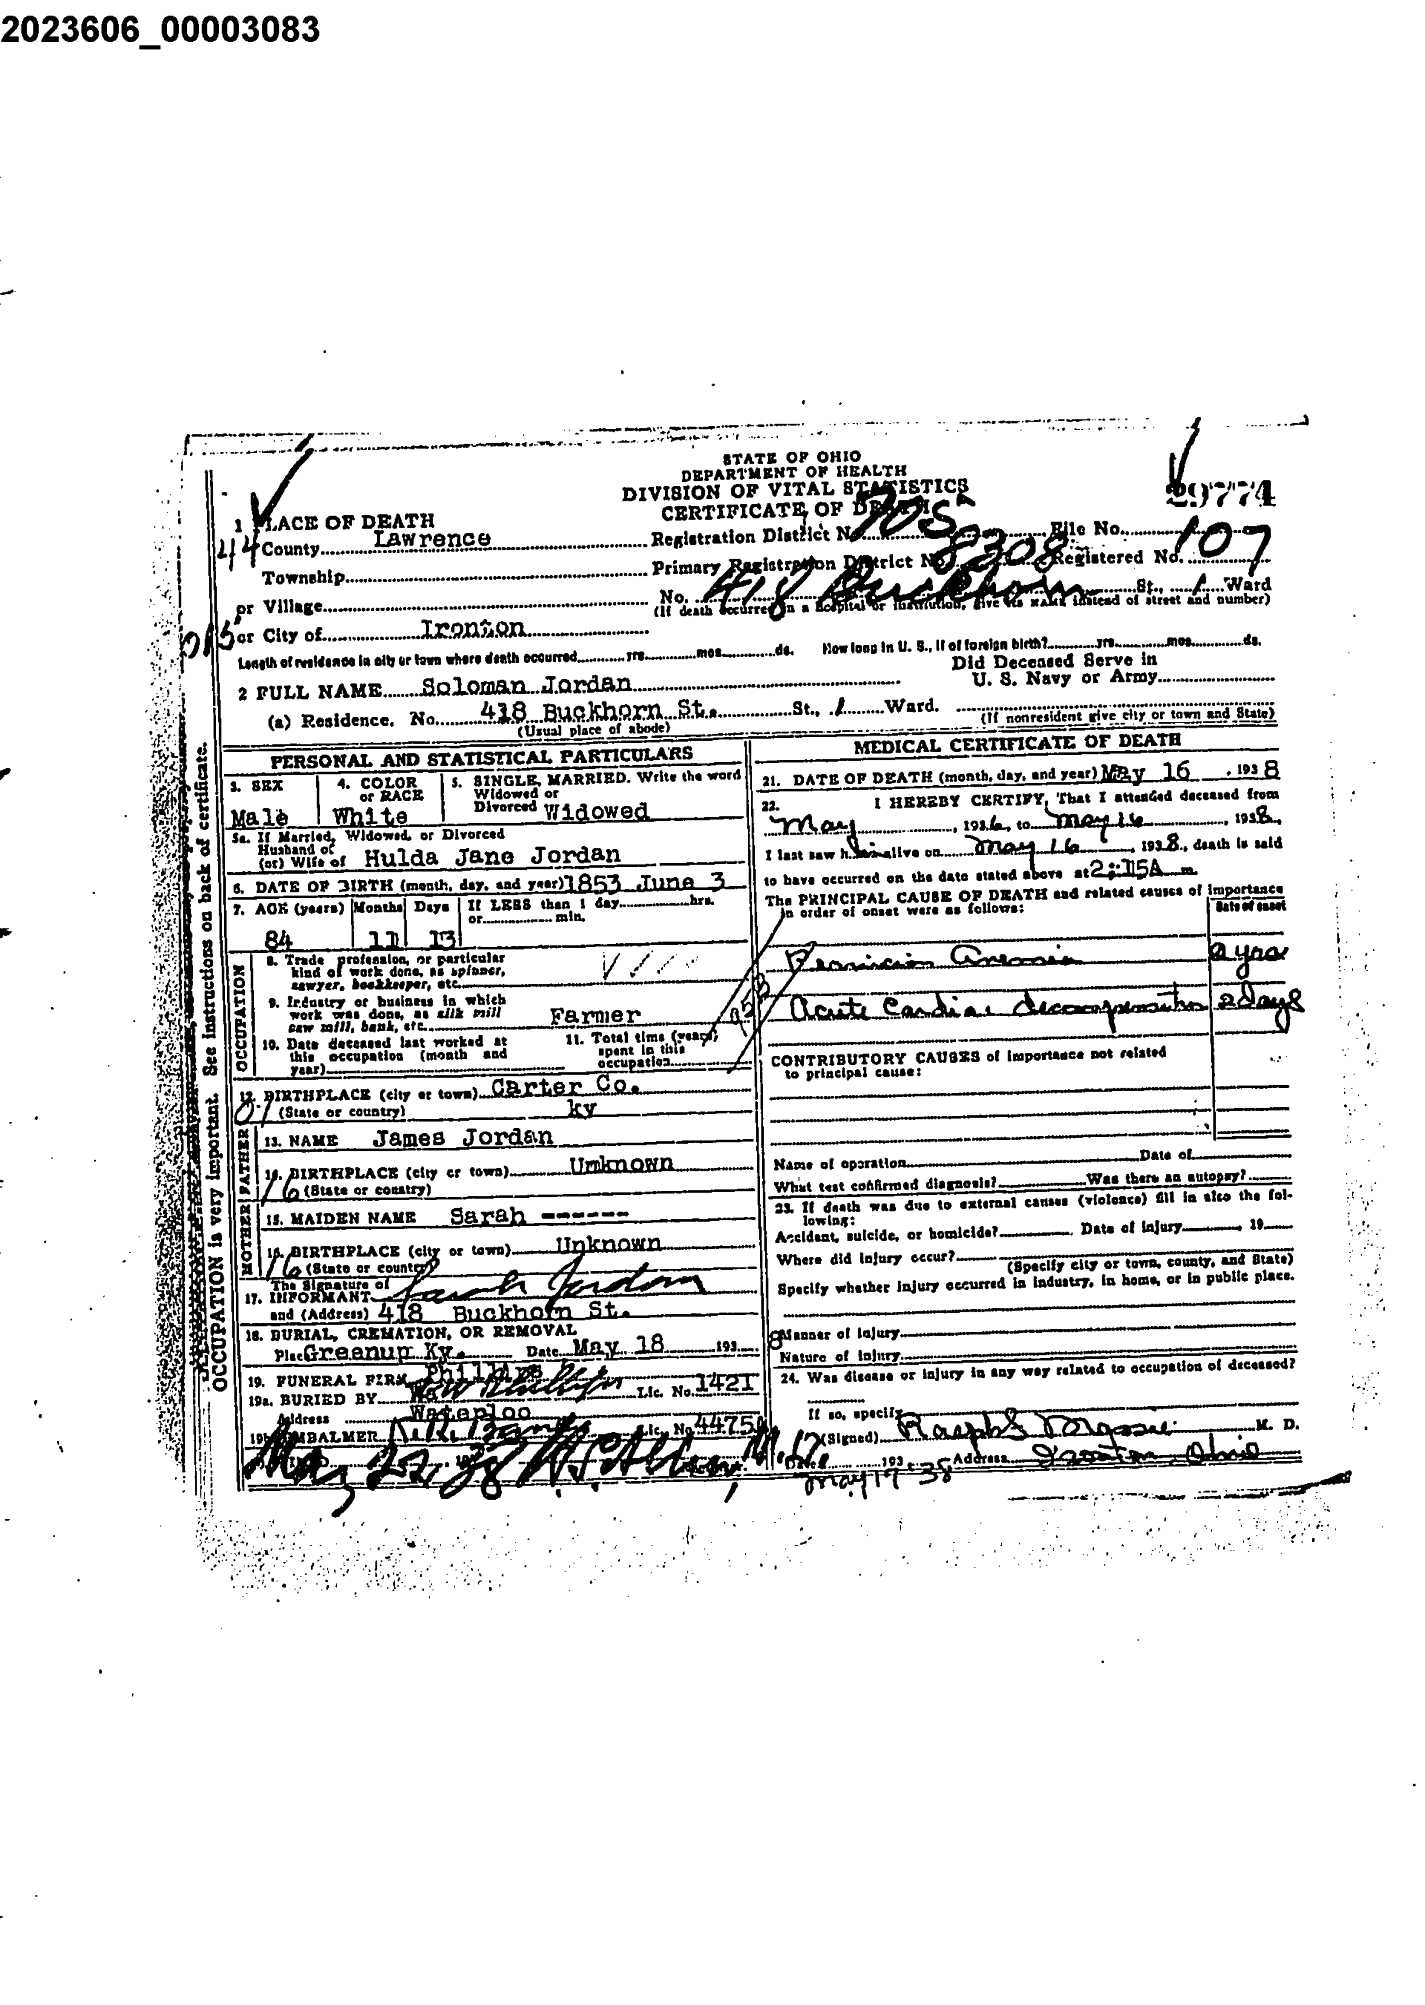 2023606_00003083
STATE OF OHIO
DEPARTMENT OF HEALTH
DIVISION OF VITAL STATISTICS
CERTIFICATE OF DEATH
29774
1 PLACE OF DEATH
44 County Lawrence
Registration District No. 705 File No.
Township
Primary Registration District No. 8308 Registered No. 107
or Village
No. 418 Buckhorn St., 1 Ward
(If death occurred in a hospital or institution, give its NAME instead of street and number)
or City of Ironton
Length of residence in city or town where death occurred yrs. mos. ds. How long in U. S., if of foreign birth? yrs. mos. ds.
2 FULL NAME Soloman Jordan
Did Deceased Serve in
U. S. Navy or Army
(a) Residence. No. 418 Buckhorn St. St., 1 Ward.
(Usual place of abode)
(If nonresident give city or town and State)
OCCUPATION is very important. See instructions on back of certificate.
PERSONAL AND STATISTICAL PARTICULARS
3. SEX
Male
4. COLOR
or RACE
White
5. SINGLE, MARRIED. Write the word
Widowed or
Divorced Widowed
5a. If Married, Widowed, or Divorced
Husband of
(or) Wife of Hulda Jane Jordan
6. DATE OF BIRTH (month, day, and year) 1853 June 3
7. AGE (years) Months Days If LESS than 1 day hrs.
or min.
84 11 13
OCCUPATION
8. Trade profession, or particular
kind of work done, as spinner,
sawyer, bookkeeper, etc.
9. Industry or business in which
work was done, as silk mill
saw mill, bank, etc. Farmer
10. Date deceased last worked at
this occupation (month and
year)
11. Total time (years)
spent in this
occupation
12. BIRTHPLACE (city or town) Carter Co.
(State or country) ky
FATHER
13. NAME James Jordan
14. BIRTHPLACE (city or town) Unknown
16 (State or country)
MOTHER
15. MAIDEN NAME Sarah ------
16. BIRTHPLACE (city or town) Unknown
16 (State or country)
The Signature of
17. INFORMANT Sarah Jordan
and (Address) 418 Buckhorn St.
18. BURIAL, CREMATION, OR REMOVAL
Place Greenup Ky. Date May 18 193 8
19. FUNERAL FIRM Phillips
19a. BURIED BY Lic. No. 1421
Address Waterloo
19b. EMBALMER Lic. No. 4475
May 22, 38
MEDICAL CERTIFICATE OF DEATH
21. DATE OF DEATH (month, day, and year) May 16, 193 8
22. I HEREBY CERTIFY, That I attended deceased from
May, 193 6, to May 16, 193 8,
I last saw him alive on May 16, 193 8, death is said
to have occurred on the date stated above at 2:15A m.
The PRINCIPAL CAUSE OF DEATH and related causes of importance
in order of onset were as follows:
Date of onset
Pernicious Anemia 2 yrs
Acute Cardiac decompensation 2 days
CONTRIBUTORY CAUSES of importance not related
to principal cause:
Name of operation Date of
What test confirmed diagnosis? Was there an autopsy?
23. If death was due to external causes (violence) fill in also the fol-
lowing:
Accident, suicide, or homicide? Date of injury, 19
Where did injury occur?
(Specify city or town, county, and State)
Specify whether injury occurred in industry, in home, or in public place.
Manner of injury
Nature of injury
24. Was disease or injury in any way related to occupation of deceased?
If so, specify
(Signed) Ralph F Massie M. D.
Date 193 Address Ironton, Ohio
May 17 38